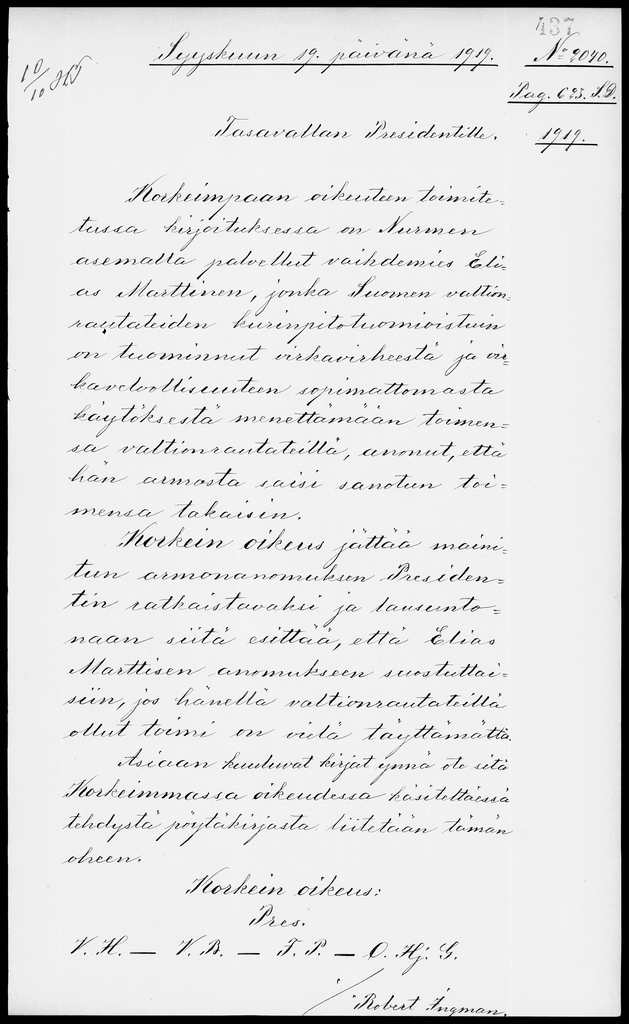 437
Syyskuun 19. päivänä 1919.
No 2040.
Pag. 623. S.D.
1919.
10/10
Tasavallan Presidentille.
Korkeimpaan oikeuteen toimite=
tussa kirjoituksessa on Nurmen
asemalla palvellut vaihdemies Eli=
as Marttinen, jonka Suomen valtion=
rautateiden kurinpitotuomioistuin
on tuominnut virkavirheestä ja vir=
kavelvollisuuteen sopimattomasta
käytöksestä menettämään toimen=
sa valtionrautateillä, anonut, että
hän armosta saisi sanotun toi=
mensa takaisin.
Korkein oikeus jättää maini=
tun armonanomuksen Presiden=
tin ratkaistavaksi ja lausunto=
naan siitä esittää, että Elias
Marttisen anomukseen suostuttai=
siin, jos hänellä valtionrautateillä
ollut toimi on vielä täyttämättä.
Asiaan kuuluvat kirjat ynnä ote sitä
Korkeimmassa oikeudessa käsiteltäessä
tehdystä pöytäkirjasta liitetään tämän
oheen.
Korkein oikeus:
Pres.
V. H. — V. B. — F. P. — O. Hj. G.
Robert Ingman.